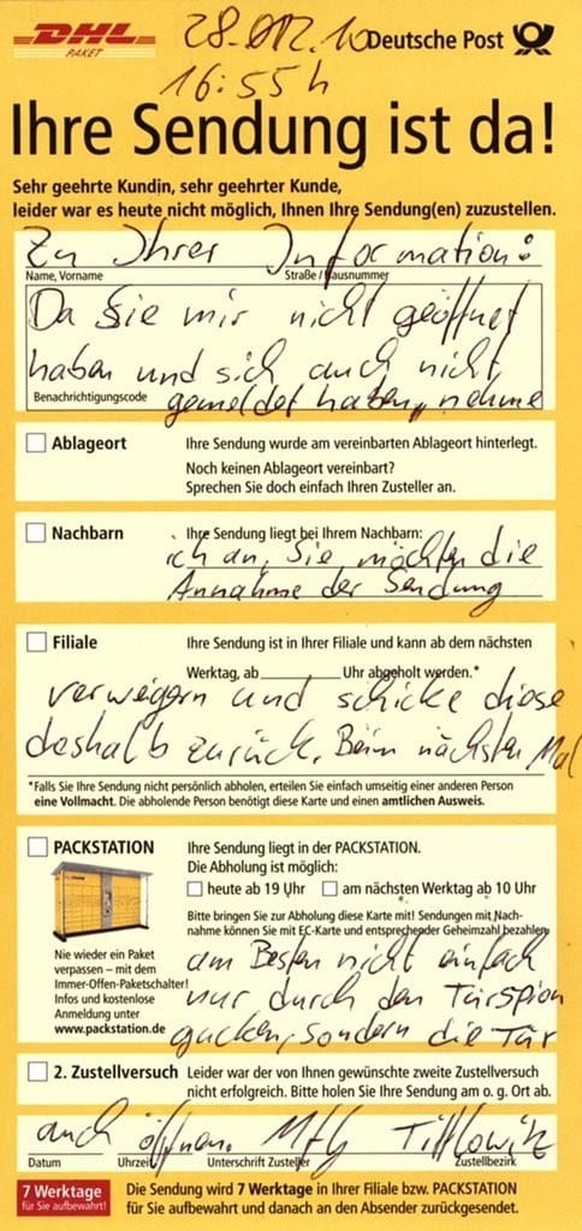 DHL
PAKET
28.02.10
16:55 h
Deutsche Post
Ihre Sendung ist da!
Sehr geehrte Kundin, sehr geehrter Kunde,
leider war es heute nicht möglich, Ihnen Ihre Sendung(en) zuzustellen.
Zu Ihrer Information:
Name, Vorname
Straße / Hausnummer
Da Sie mir nicht geöffnet
haben und sich auch nicht
Benachrichtigungscode
gemeldet haben, nehme
Ablageort
Ihre Sendung wurde am vereinbarten Ablageort hinterlegt.
Noch keinen Ablageort vereinbart?
Sprechen Sie doch einfach Ihren Zusteller an.
Nachbarn
Ihre Sendung liegt bei Ihrem Nachbarn:
ich an, Sie möchten die
Annahme der Sendung
Filiale
Ihre Sendung ist in Ihrer Filiale und kann ab dem nächsten
Werktag, ab ____ Uhr abgeholt werden.*
verweigern und schicke diese
deshalb zurück. Beim nächsten Mal
*Falls Sie Ihre Sendung nicht persönlich abholen, erteilen Sie einfach umseitig einer anderen Person
eine Vollmacht. Die abholende Person benötigt diese Karte und einen amtlichen Ausweis.
PACKSTATION
Ihre Sendung liegt in der PACKSTATION.
Die Abholung ist möglich:
heute ab 19 Uhr
am nächsten Werktag ab 10 Uhr
Bitte bringen Sie zur Abholung diese Karte mit! Sendungen mit Nach-
nahme können Sie mit EC-Karte und entsprechender Geheimzahl bezahlen.
Nie wieder ein Paket
verpassen – mit dem
Immer-Offen-Paketschalter!
Infos und kostenlose
Anmeldung unter
www.packstation.de
am Besten nicht einfach
nur durch den Türspion
gucken, sondern die Tür
2. Zustellversuch
Leider war der von Ihnen gewünschte zweite Zustellversuch
nicht erfolgreich. Bitte holen Sie Ihre Sendung am o. g. Ort ab.
auch öffnen. MfG
Datum
Uhrzeit
Unterschrift Zusteller
Zustellbezirk
7 Werktage
für Sie aufbewahrt!
Die Sendung wird 7 Werktage in Ihrer Filiale bzw. PACKSTATION
für Sie aufbewahrt und danach an den Absender zurückgesendet.